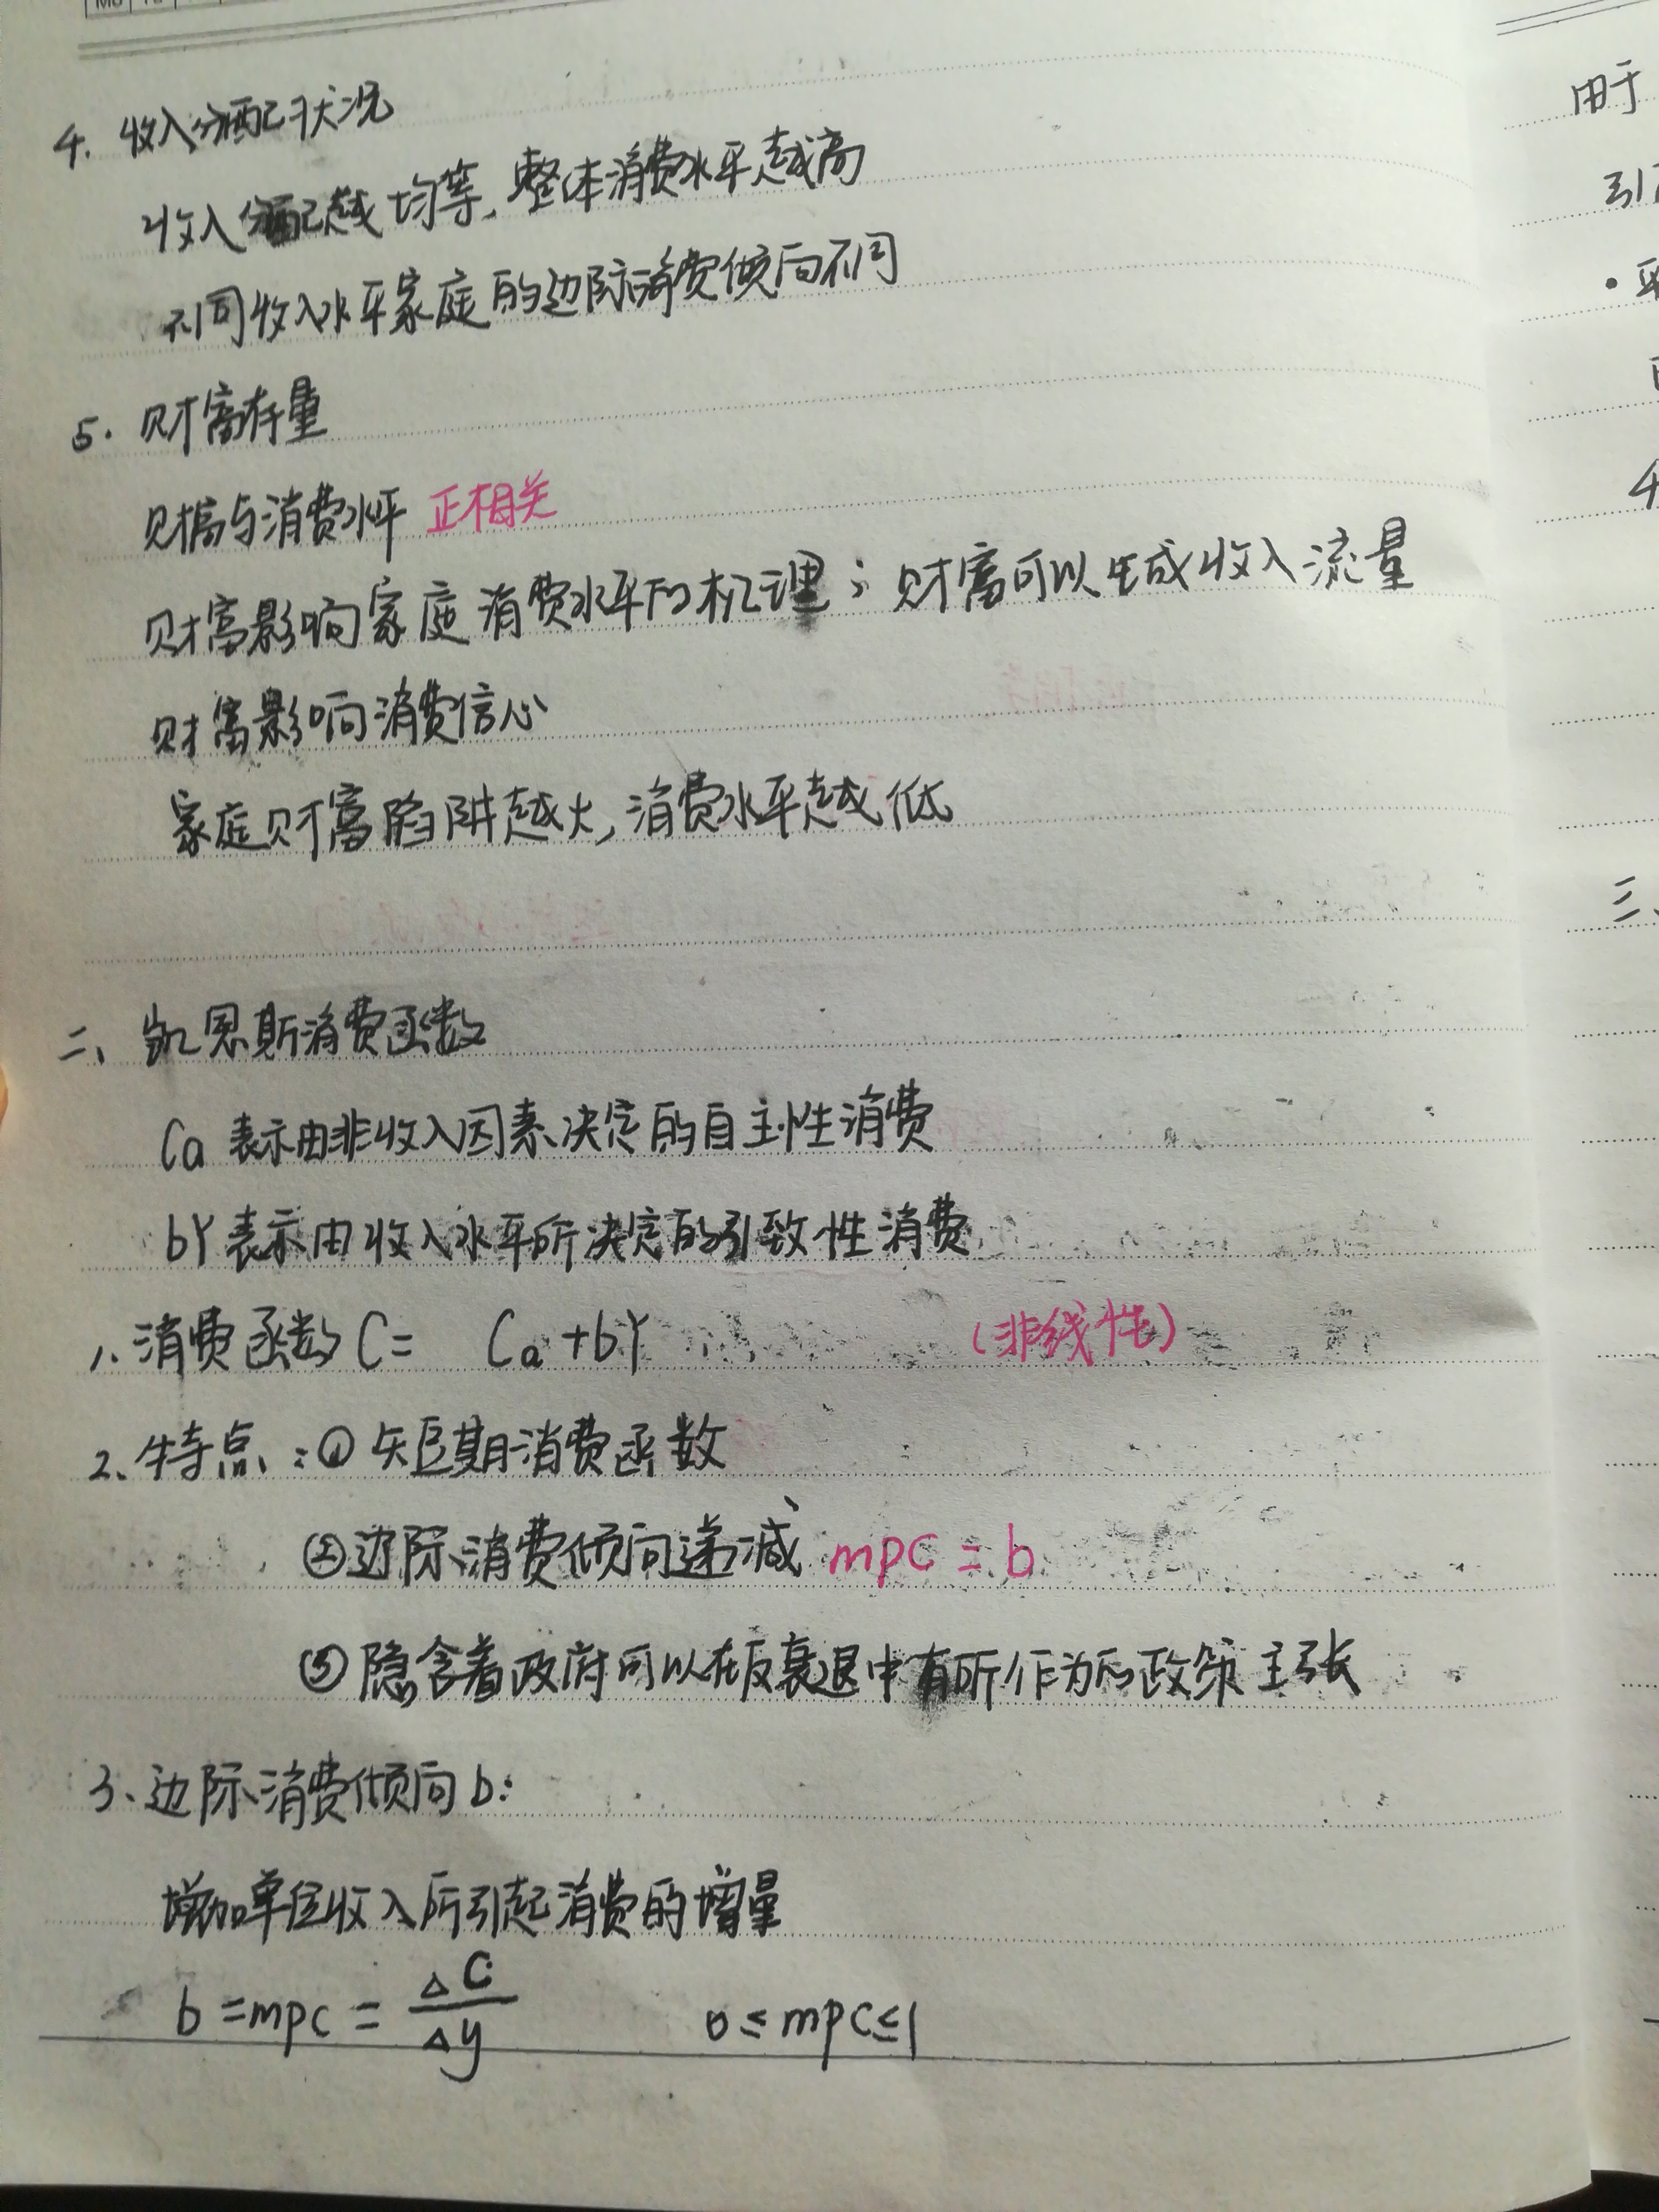 4. 收入分配状况
收入分配越均等,整体消费水平越高
不同收入水平家庭的边际消费倾向不同
5. 财富存量
财富与消费水平 正相关
财富影响家庭消费水平的机理;财富可以生成收入流量
财富影响消费信心
家庭财富陷阱越大,消费水平越低
二、凯恩斯消费函数
Ca 表示由非收入因素决定的自主性消费
bY表示由收入水平所决定的引致性消费
1、消费函数 C= Ca+bY (非线性)
2、特点:①短期消费函数
②边际消费倾向递减 mpc = b
③隐含着政府可以在反衰退中有所作为的政策主张
3、边际消费倾向b:
增加单位收入所引起消费的增量
b =mpc = ΔC/Δy 0≤mpc≤1
用于
三、